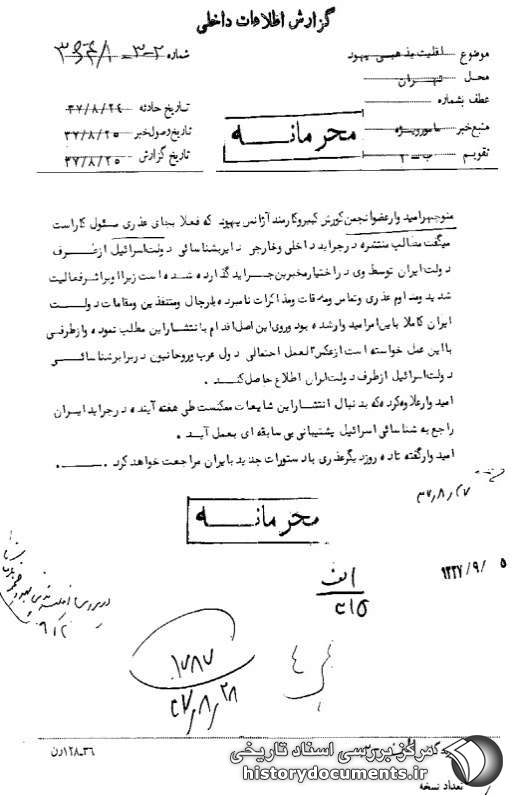 گزارش اطلاعات داخلی
موضوع اقلیت مذهبی یهود
شماره ۳-۲
محل تهران
عطف بشماره
تاریخ حادثه ۳۷/۸/۲۴
منبع خبر مامور ویژه
تاریخ وصول خبر ۳۷/۸/۲۵
تقویم ب-۲
تاریخ گزارش ۳۷/۸/۲۵
محرمانه
منوچهر امیدوار عضو انجمن کورش کبیر و کارمند آژانس یهود که فعلا بجای عذری مسئول کار است
میگفت مطالب منتشره در جراید داخلی و خارجی دایر بشناسائی دولت اسرائیل از طرف
دولت ایران توسط وی در اختیار مخبرین جراید گذارده شده است زیرا او بر اثر فعالیت
شدید و مداوم عذری و تماس و ملاقات و مذاکرات نامبرده با رجال و متنفذین و مقامات دولت
ایران کاملا باین امر امیدوار شده بود و روی این اصل اقدام با انتشار این مطلب نموده و از طرفی
با این عمل خواسته است از عکس العمل احتمالی دول عرب و روحانیون در برابر شناسائی
دولت اسرائیل از طرف دولت ایران اطلاع حاصل کند .
امیدوار علاوه کرده که بدنبال انتشار این شایعات ممکنست طی هفته آینده در جراید ایران
راجع به شناسائی اسرائیل پشتیبانی بی سابقه ای بعمل آید .
امیدوار گفته تا ده روز دیگر عذری با دستورات جدید بایران مراجعت خواهد کرد .
۳۷/۸/۲۷
محرمانه
۵ /۹/ ۱۳۳۷
الف
۲۱۵
۱۷۸۷
۳۷/۸/۲۸
۳۶-۱۲۸ رن
مرکز بررسی اسناد تاریخی
historydocuments.ir
تعداد نسخه